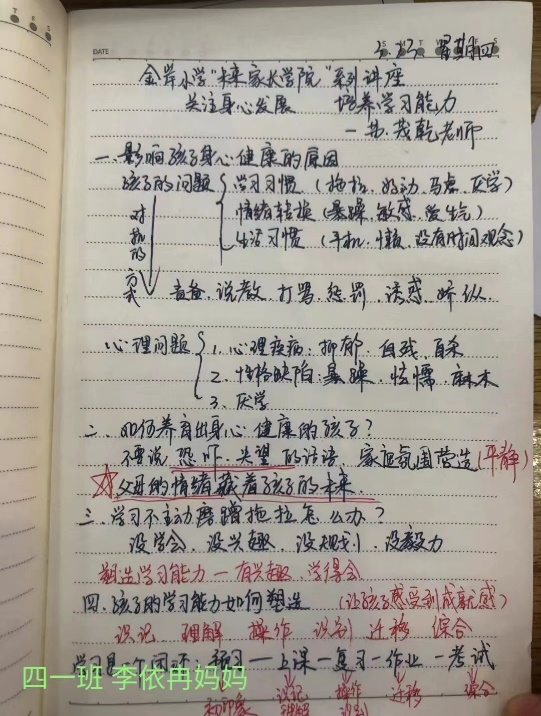 DATE
星期四
金岸小学“未来家长学院”系列讲座
关注身心发展 培养学习能力
老师
一.影响孩子身心健康的原因
孩子的问题 学习习惯（拖拉、好动、马虎、厌学）
情绪转换（暴躁、敏感、爱生气）
生活习惯（手机、懒、没有时间观念）
对抗的方式
责备、说教、打骂、惩罚、诱惑、娇纵
心理问题 1.心理疾病：抑郁、自残、自杀
2.性格缺陷：暴躁、怯懦、麻木
3.厌学
二.如何养育出身心健康的孩子？
不要说恐吓、失望的话语、家庭氛围营造（平静）
父母的情绪藏着孩子的未来
三.学习不主动磨蹭拖拉怎么办？
没学会、没兴趣、没规划、没毅力
塑造学习能力一有兴趣、学得会
四.孩子的学习能力如何塑造（让孩子感受到成就感）
识记 理解 操作 识别 迁移 综合
学习是一个闭环：预习一上课一复习一作业一考试
初印象 识记 理解 操作 识别 迁移 综合
四一班 李依冉妈妈